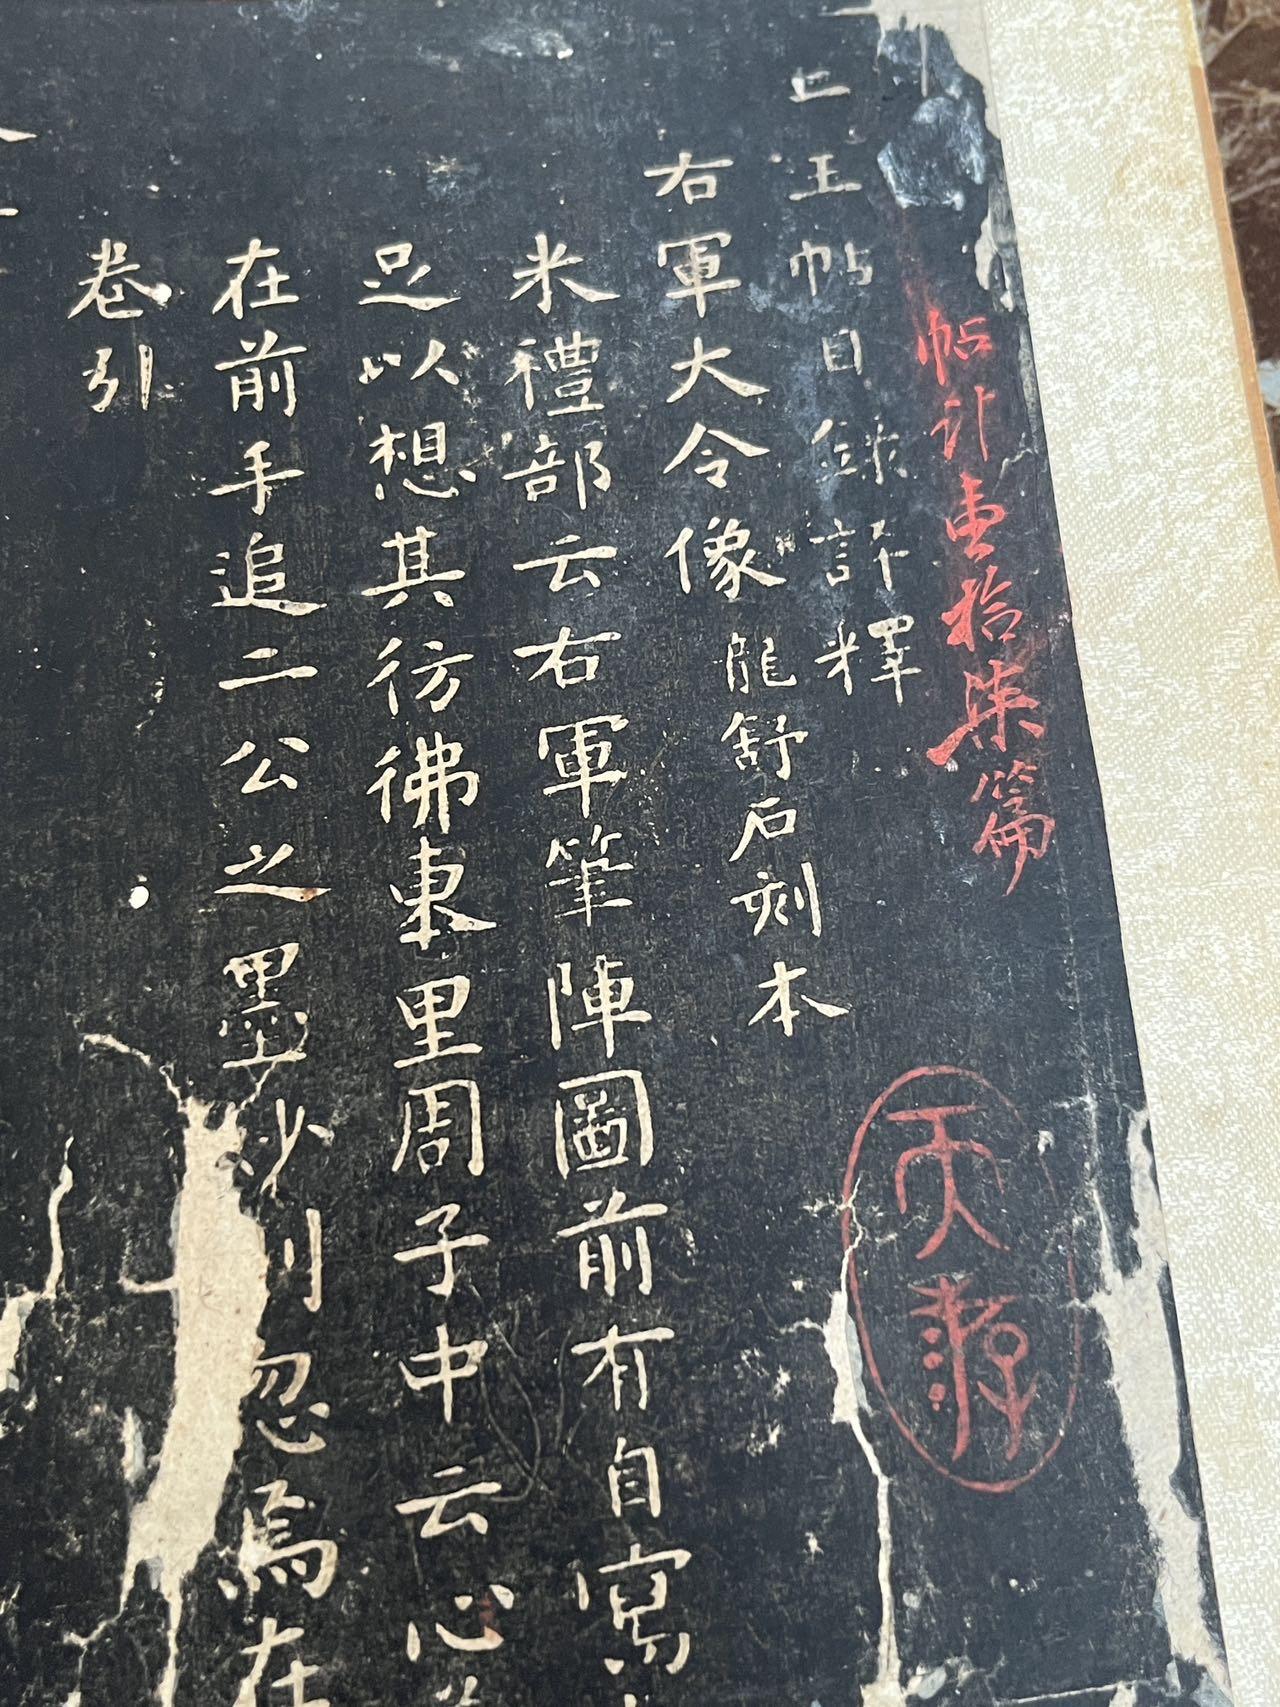 帖計壹拾柒篇
二王帖目錄評釋
右軍大令像 龍舒石刻本
米禮部云右軍筆陣圖前有自寫
足以想其彷彿東里周子中云心
在前手追二公之墨妙則忽焉在
卷引